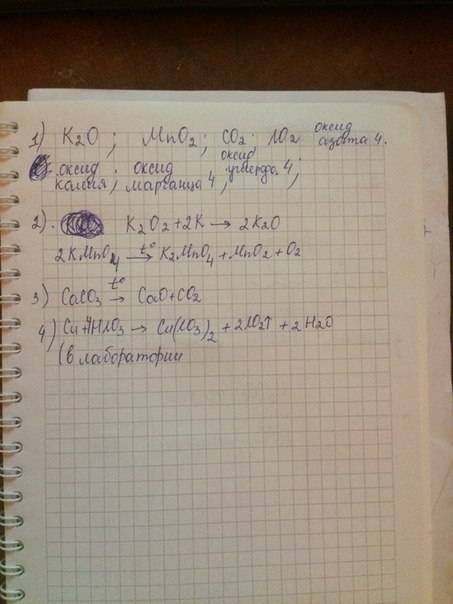 1) K2O ; MnO2 ; CO2 ; NO2 оксид азота 4.
оксид калия ; оксид марганца 4 ; оксид углерода 4 ;
2). K2O2 + 2K → 2K2O
2KMnO4 t° → K2MnO4 + MnO2 + O2
3) CaCO3 t° → CaO + CO2
4) Cu + 4HNO3 → Cu(NO3)2 + 2NO2↑ + 2H2O
(в лаборатории